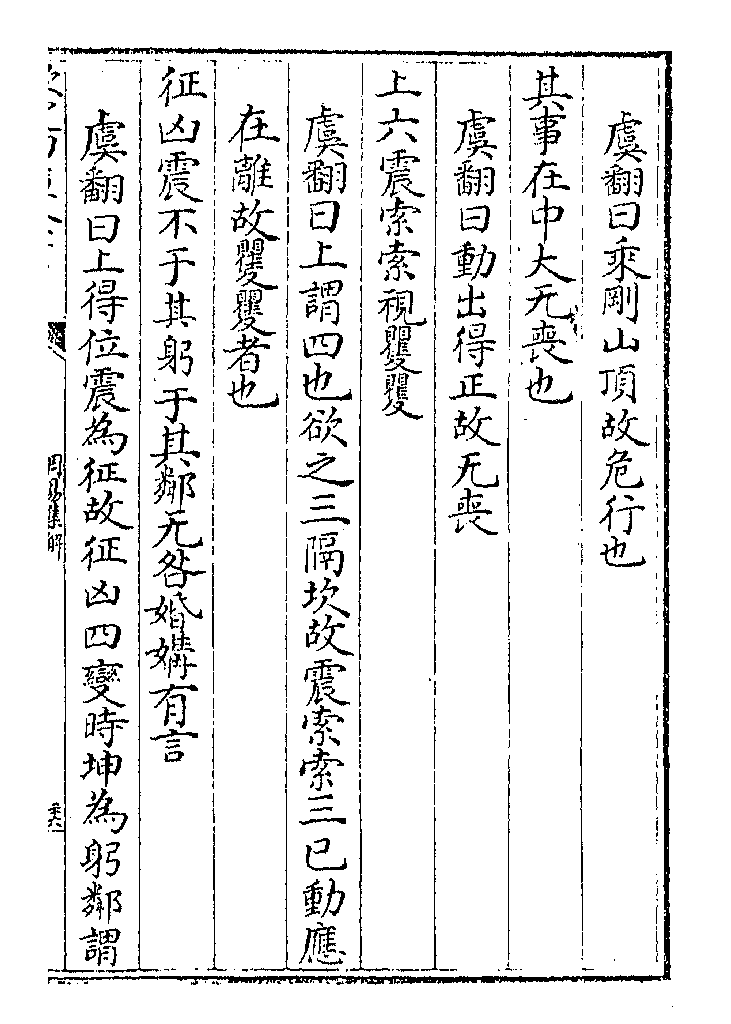 虞翻曰乘剛山頂故危行也
其事在中大无喪也
虞翻曰動出得正故无喪
上六震索索視矍矍
虞翻曰上謂四也欲之三隔坎故震索索三已動應
在離故矍矍者也
征凶震不于其躬于其鄰无咎婚媾有言
虞翻曰上得位震為征故征凶四變時坤為躬鄰謂
周易集解